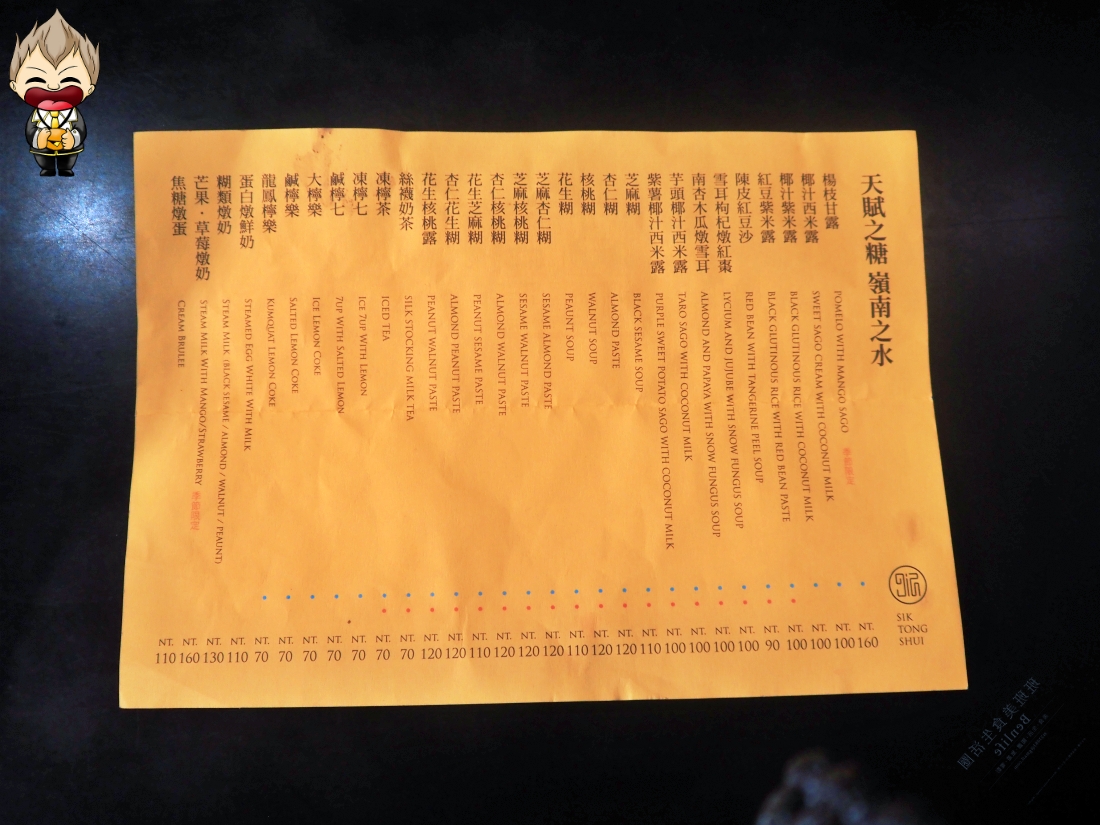 天賦之糖 嶺南之水
SIK
TONG
SHUI
楊枝甘露 POMELO WITH MANGO SAGO 季節限定 NT. 160
椰汁西米露 SWEET SAGO CREAM WITH COCONUT MILK NT. 100
椰汁紫米露 BLACK GLUTINOUS RICE WITH COCONUT MILK NT. 100
紅豆紫米露 BLACK GLUTINOUS RICE WITH RED BEAN PASTE NT. 100
陳皮紅豆沙 RED BEAN WITH TANGERINE PEEL SOUP NT. 90
雪耳枸杞燉紅棗 LYCIUM AND JUJUBE WITH SNOW FUNGUS SOUP NT. 100
南杏木瓜燉雪耳 ALMOND AND PAPAYA WITH SNOW FUNGUS SOUP NT. 100
芋頭椰汁西米露 TARO SAGO WITH COCONUT MILK NT. 100
紫薯椰汁西米露 PURPLE SWEET POTATO SAGO WITH COCONUT MILK NT. 100
芝麻糊 BLACK SESAME SOUP NT. 110
杏仁糊 ALMOND PASTE NT. 120
核桃糊 WALNUT SOUP NT. 120
花生糊 PEAUNT SOUP NT. 110
芝麻杏仁糊 SESAME ALMOND PASTE NT. 120
芝麻核桃糊 SESAME WALNUT PASTE NT. 120
杏仁核桃糊 ALMOND WALNUT PASTE NT. 120
花生芝麻糊 PEANUT SESAME PASTE NT. 110
杏仁花生糊 ALMOND PEANUT PASTE NT. 120
花生核桃露 PEANUT WALNUT PASTE NT. 120
絲襪奶茶 SILK STOCKING MILK TEA NT. 70
凍檸茶 ICED TEA NT. 70
凍檸七 ICE 7UP WITH LEMON NT. 70
鹹檸七 7UP WITH SALTED LEMON NT. 70
大檸樂 ICE LEMON COKE NT. 70
鹹檸樂 SALTED LEMON COKE NT. 70
龍鳳檸樂 KUMQUAT LEMON COKE NT. 70
蛋白燉鮮奶 STEAMED EGG WHITE WITH MILK NT. 110
糊類燉奶 STEAM MILK (BLACK SESAME / ALMOND / WALNUT / PEAUNT) NT. 130
芒果・草莓燉奶 STEAM MILK WITH MANGO/STRAWBERRY 季節限定 NT. 160
焦糖燉蛋 CREAM BRULEE NT. 110
班班美食生活圈
Benlife